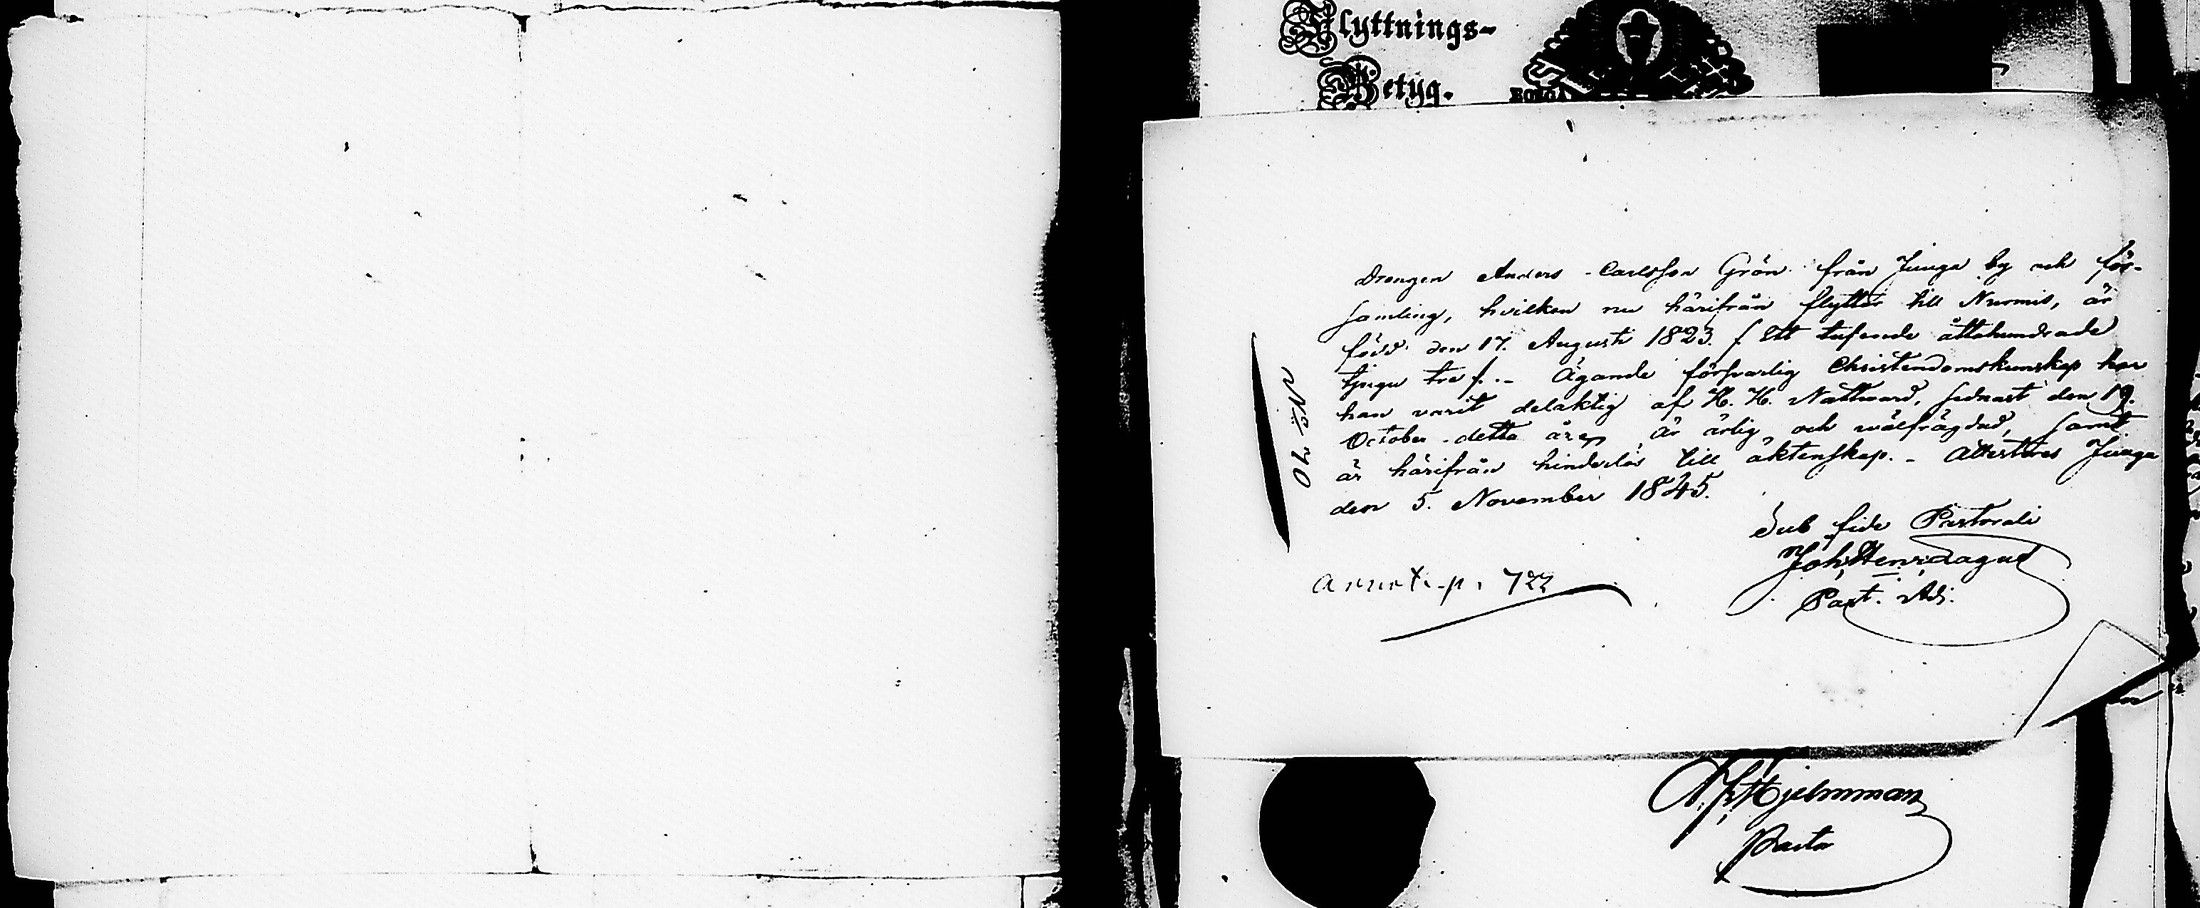 Flyttnings-
Betyg.
Drengen Anders Carlsson Grön från Juuga by och för-
samling, hvilken nu härifrån flyttar till Nurmis, är
född den 17. Augusti 1823. f. Ett tusende åttahundrade
tjugu tre f. - Ägande försvarlig Christendomskunskap har
han varit delaktig af H. H. Nattward, sednast den 19.
October detta år, är ärlig och wälfrägdad, samt
är härifrån hinderlös till äktenskap. - Attesteras Juuga
den 5. November 1845.
Sub fide Pastorali
Joh. Henr.
Past. Adj.
No 70
annot. p. 722
Hjelmman
Pastor